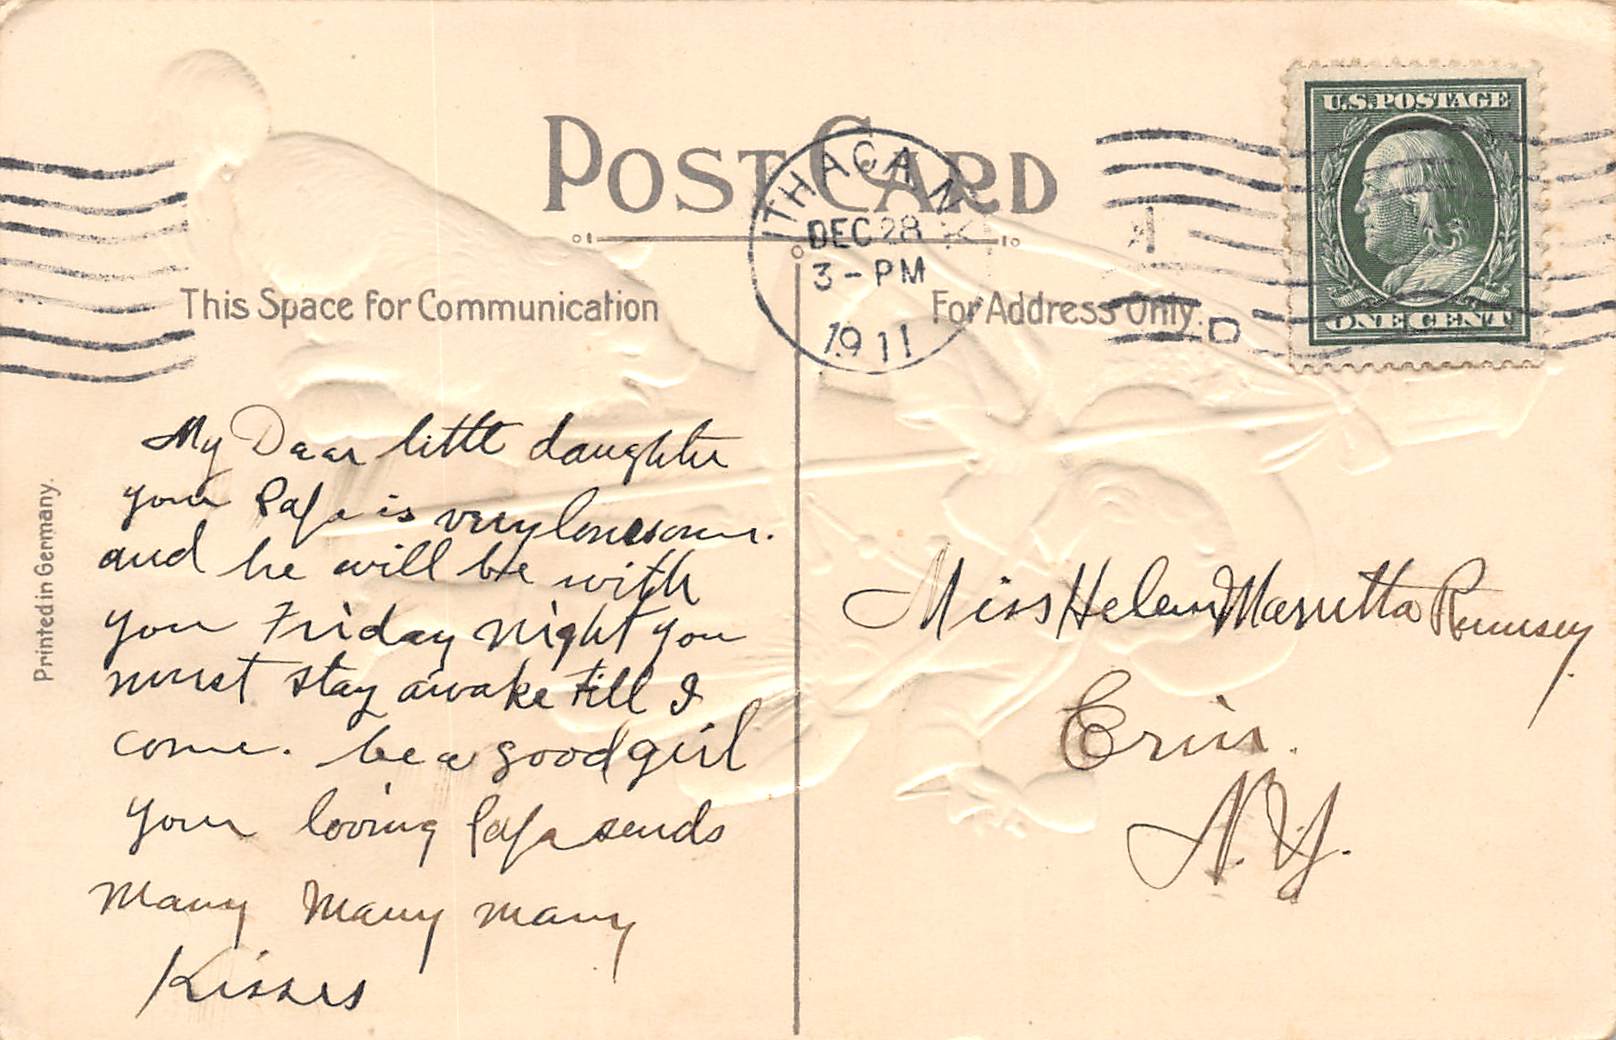 POST CARD
U.S. POSTAGE
ONE CENT
ITHACA N
DEC 28
3 - PM
1911
D
This Space for Communication
For Address Only.
Printed in Germany.
My Dear little daughter
your Papa is very lonesome.
and he will be with
you Friday night you
must stay awake till I
come. be a good girl
your loving Papa sends
many many many
Kisses
Miss Helen Marretta Rumsey
Erin.
N.Y.